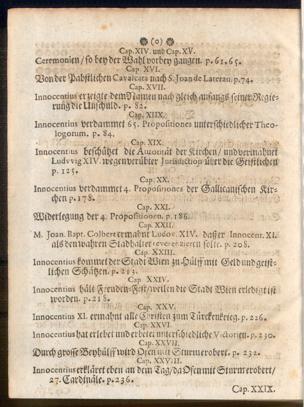 (o)
Cap. XIV. und Cap. XV.
Ceremonien / so bey der Wahl vorbey gangen. p. 61. 65.
Cap. XVI.
Von der Päbstlichen Cavalcata nach S. Joan de Lateran. p. 74.
Cap. XVII.
Innocentius erzeigte dem Namen nach gleich anfangs seiner Regie-
rung die Unschuld. p. 82.
Cap. XIIX.
Innocentius verdammet 65. Propositiones unterschiedlicher Theo-
logorum. p. 84.
Cap. XIX.
Innocentius beschützet die Autorität der Kirchen / und vermahnet
Ludvvig XIV. wegen verübter Jurisdiction über die Geistlichen
p. 125.
Cap. XX.
Innocentius verdammet 4. Propositiones der Gallicanischen Kir-
chen p. 178.
Cap. XXI.
Widerlegung der 4. Propositionen. p. 186.
Cap. XXII.
M. Joan. Bapt. Colbert ermahnt Ludov. XIV. daß er Innocent. XI.
als den wahren Stadhalter reverentieren solte. p. 208.
Cap. XXIII.
Innocentius kommet der Stadt Wien zu Hülff mit Geld und geist-
lichen Schätzen. p. 213.
Cap. XXIV.
Innocentius hält Freuden-Fest / weilen die Stadt Wien erlediget ist
worden. p. 218.
Cap. XXV.
Innocentius XI. ermahnt alle Christen zum Türckenkrieg. p. 226.
Cap. XXVI.
Innocentius hat erlebet und erbeten unterschiedliche Victorien. p. 230.
Cap. XXVII.
Durch grosse Beyhülff wird Ofen mit Sturm erobert. p. 232.
Cap. XXVIII.
Innocentius erkläret eben an dem Tag / da Ofen mit Sturm erobert /
27. Cardinäle. p. 236.
Cap. XXIX.